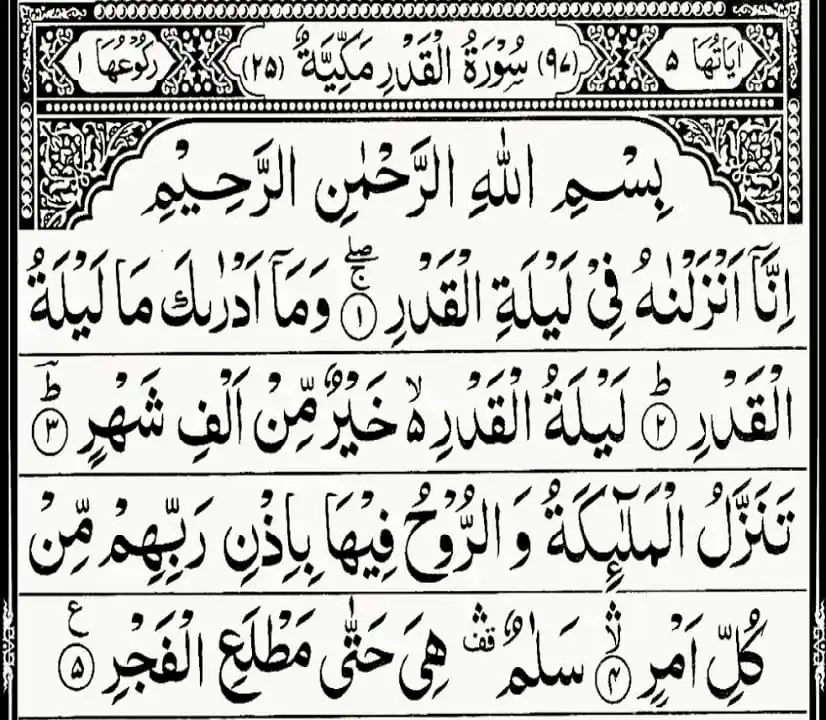 اٰيَاتُهَا ٥ (٩٧) سُوْرَةُ الْقَدْرِ مَكِّيَّةٌ (٢٥) رُكُوْعُهَا ١
بِسْمِ اللّٰهِ الرَّحْمٰنِ الرَّحِيْمِ
اِنَّاۤ اَنْزَلْنٰهُ فِىْ لَيْلَةِ الْقَدْرِ ۝١ۖۚ وَمَاۤ اَدْرٰىكَ مَا لَيْلَةُ
الْقَدْرِ ۝٢ؕ لَيْلَةُ الْقَدْرِ ۙ۬ خَيْرٌ مِّنْ اَلْفِ شَهْرٍ ۝٣ؕ
تَنَزَّلُ الْمَلٰٓئِكَةُ وَ الرُّوْحُ فِيْهَا بِاِذْنِ رَبِّهِمْ مِّنْ
كُلِّ اَمْرٍ ۝٤ۙۛ سَلٰمٌ ۛقف هِىَ حَتّٰى مَطْلَعِ الْفَجْرِ ۝٥ ع